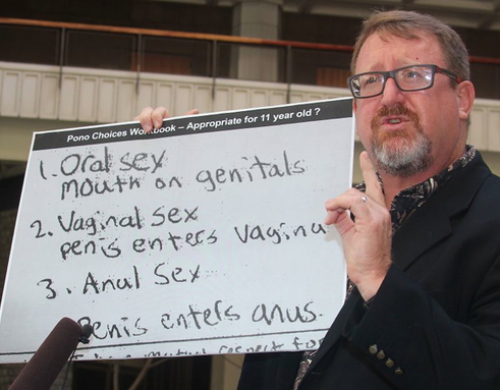 Pono Choices Workbook – Appropriate for 11 year old ?
1. Oral sex
mouth on genitals
2. Vaginal sex
penis enters vagina
3. Anal sex
penis enters anus.